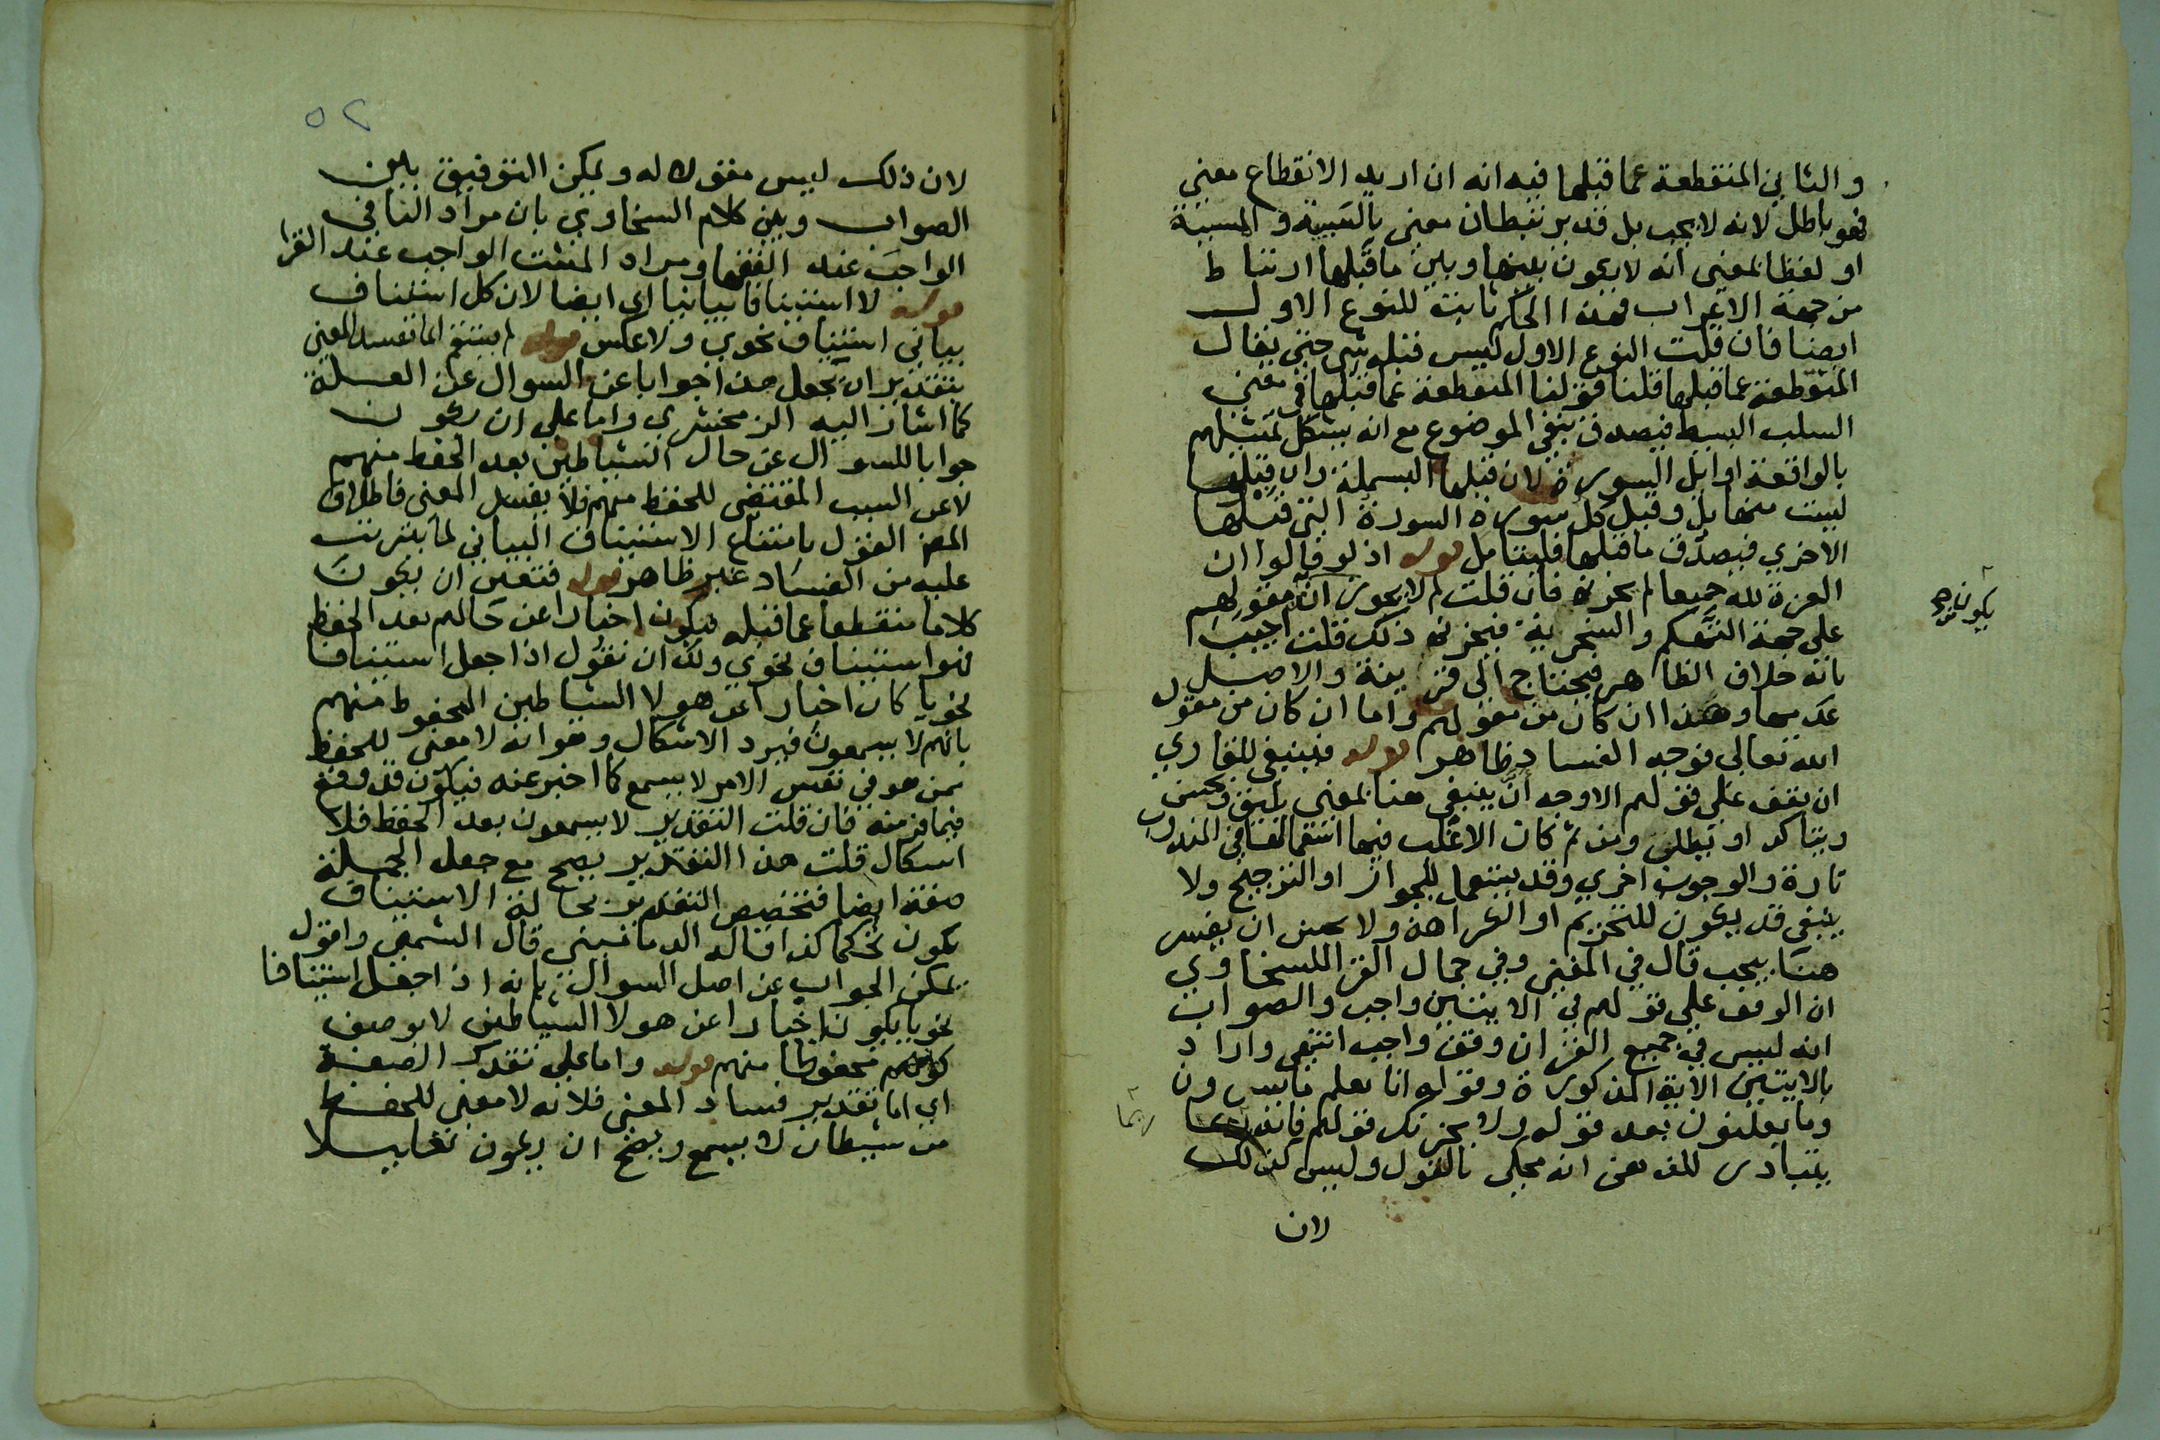 والثاني المنقطعة عما قبلها فيه انه ان اريد الانقطاع معني
فهو باطل لانه لا يجب بل قد يرتبطان معني بالسببية والمسببية
او لفظا بمعني انه لا يكون بينها وبين ما قبلها ارتباط
من جهة الاعراب فهذا الحكم ثابت للنوع الاول
ايضا فان قلت النوع الاول ليس قبله شي حتي يقال
المنقطعة عما قبلها قلنا قولنا المنقطعة عما قبلها في معني
السلب البسيط فيصدق بنفي الموضوع مع انه يشكل تمثيلهم
بالواقعة اوايل السورة لان قبلها البسملة وان قيل انها
ليست منها بل وقبل كل سورة السورة التي قبلها
الاخري فيصدق ما قبلها فليتامل قوله اذ لو قالوا ان
العزة لله جميعا لم يحزنه فان قلت لم لا يجوز ان مقولهم
يكون صح
علي جهة التهكم والسخرية فيحزنه ذلك قلت اجيب
بانه خلاف الظاهر فيحتاج الي قرينة والاصل
عدمها وهذا ان كان من مقولهم واما ان كان من مقول
الله تعالي فوجه الفساد ظاهر قوله فينبغي للقاري
ان يقف علي قولهم الاوجه ان ينبغي هنا بمعني يليق ويحسن
ويتاكد او يطلب ومن ثم كان الاغلب فيها استعمالها في المندوب
تارة والوجوب اخري وقد يستعمل للجواز او الترجيح ولا
ينبغي قد يكون للتحريم او الكراهة ولا يحسن ان يفسر
هنا بيجب قال في المغني وفي جمال القرا للسخاوي
ان الوقف علي قولهم في الايتين واجب والصواب
انه ليس في جميع القران وقف واجب انتهي واراد
بالايتين الاية المذكورة وقوله انا نعلم ما يسرون
وما يعلنون بعد قوله ولا يحزنك قولهم فانه ربما
ربما
يتبادر للذهن انه محكي بالقول وليس كذلك
لان
٥٢
لان ذلك ليس مقولا له ويمكن التوفيق بين
الصواب وبين كلام السخاوي بان مراد النافي
الواجب عند الفقها ومراد المثبت الواجب عند القرا
قوله لا استينافا بيانيا اي ايضا لان كل استيناف
بياني استيناف نحوي ولا عكس قوله لم يستقم المعني
بتقدير ان يجعل هذا جوابا عن السوال عن العلة
كما اشار اليه الزمخشري واما علي ان يكون
جوابا للسوال عن حال الشياطين بعد الحفظ منهم
لا عن السبب المقتضي للحفظ منهم فلا يفسد المعني فاطلاق
المصن القول بامتناع الاستيناف البياني لما يترتب
عليه من الفساد غير ظاهر قوله فتعين ان يكون
كلاما منقطعا عما قبله فيكون اخبارا عن حالهم بعد الحفظ
فهو استيناف نحوي ولك ان تقول اذا جعل استينافا
نحويا كان اخبارا عن هولا الشياطين المحفوظ منهم
بانهم لا يسمعون فيرد الاشكال وهو انه لا معني للحفظ
ممن هو في نفس الامر لا يسمع كما اخبر عنه فيكون قد وقع
فيما فر منه فان قلت التقدير لا يسمعون بعد الحفظ فلا
اشكال قلت هذا التقدير يصح مع جعل الجملة
صفة ايضا فتخصيص التقدير بحالة الاستيناف
يكون تحكما كذا قاله الدماميني قال الشمني واقول
يمكن الجواب عن اصل السوال بانه اذا جعل استينافا
نحويا يكون اخبارا عن هولا الشياطين لا بوصف
كونهم محفوظا منهم قوله واما علي تقدير الصفة
اي اما تقدير فساد المعني فلانه لا معني للحفظ
من شيطان لا يسمع ويصح ان يكون تعليلا